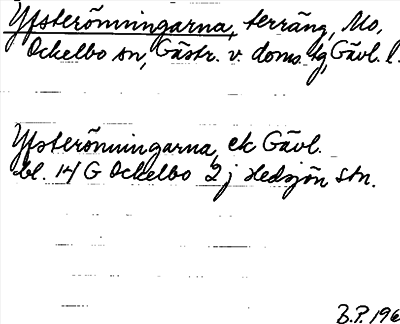 Yfsterönningarna, terräng, Mo,
Ockelbo sn, Gästr. v. doms. tg, Gävl. l.
Yfsterönningarna, ek Gävl.
bl. 14 G Ockelbo 2 j Hedsjön stn.
B.P. 196